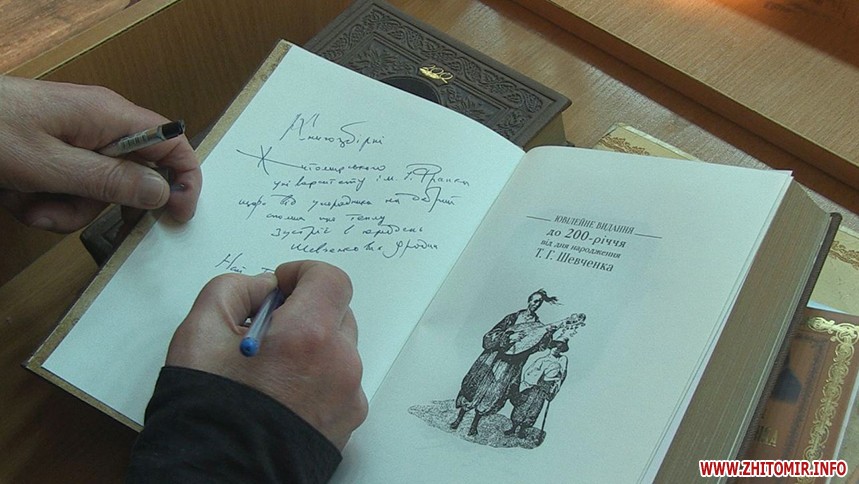 Книгозбірні
Житомирського
університету ім. І. Франка
щиро від упорядника на добрий
спомин про теплу
зустріч в
Най
ЮВІЛЕЙНЕ ВИДАННЯ
до 200-річчя
від дня народження
Т. Г. Шевченка
WWW.ZHITOMIR.INFO